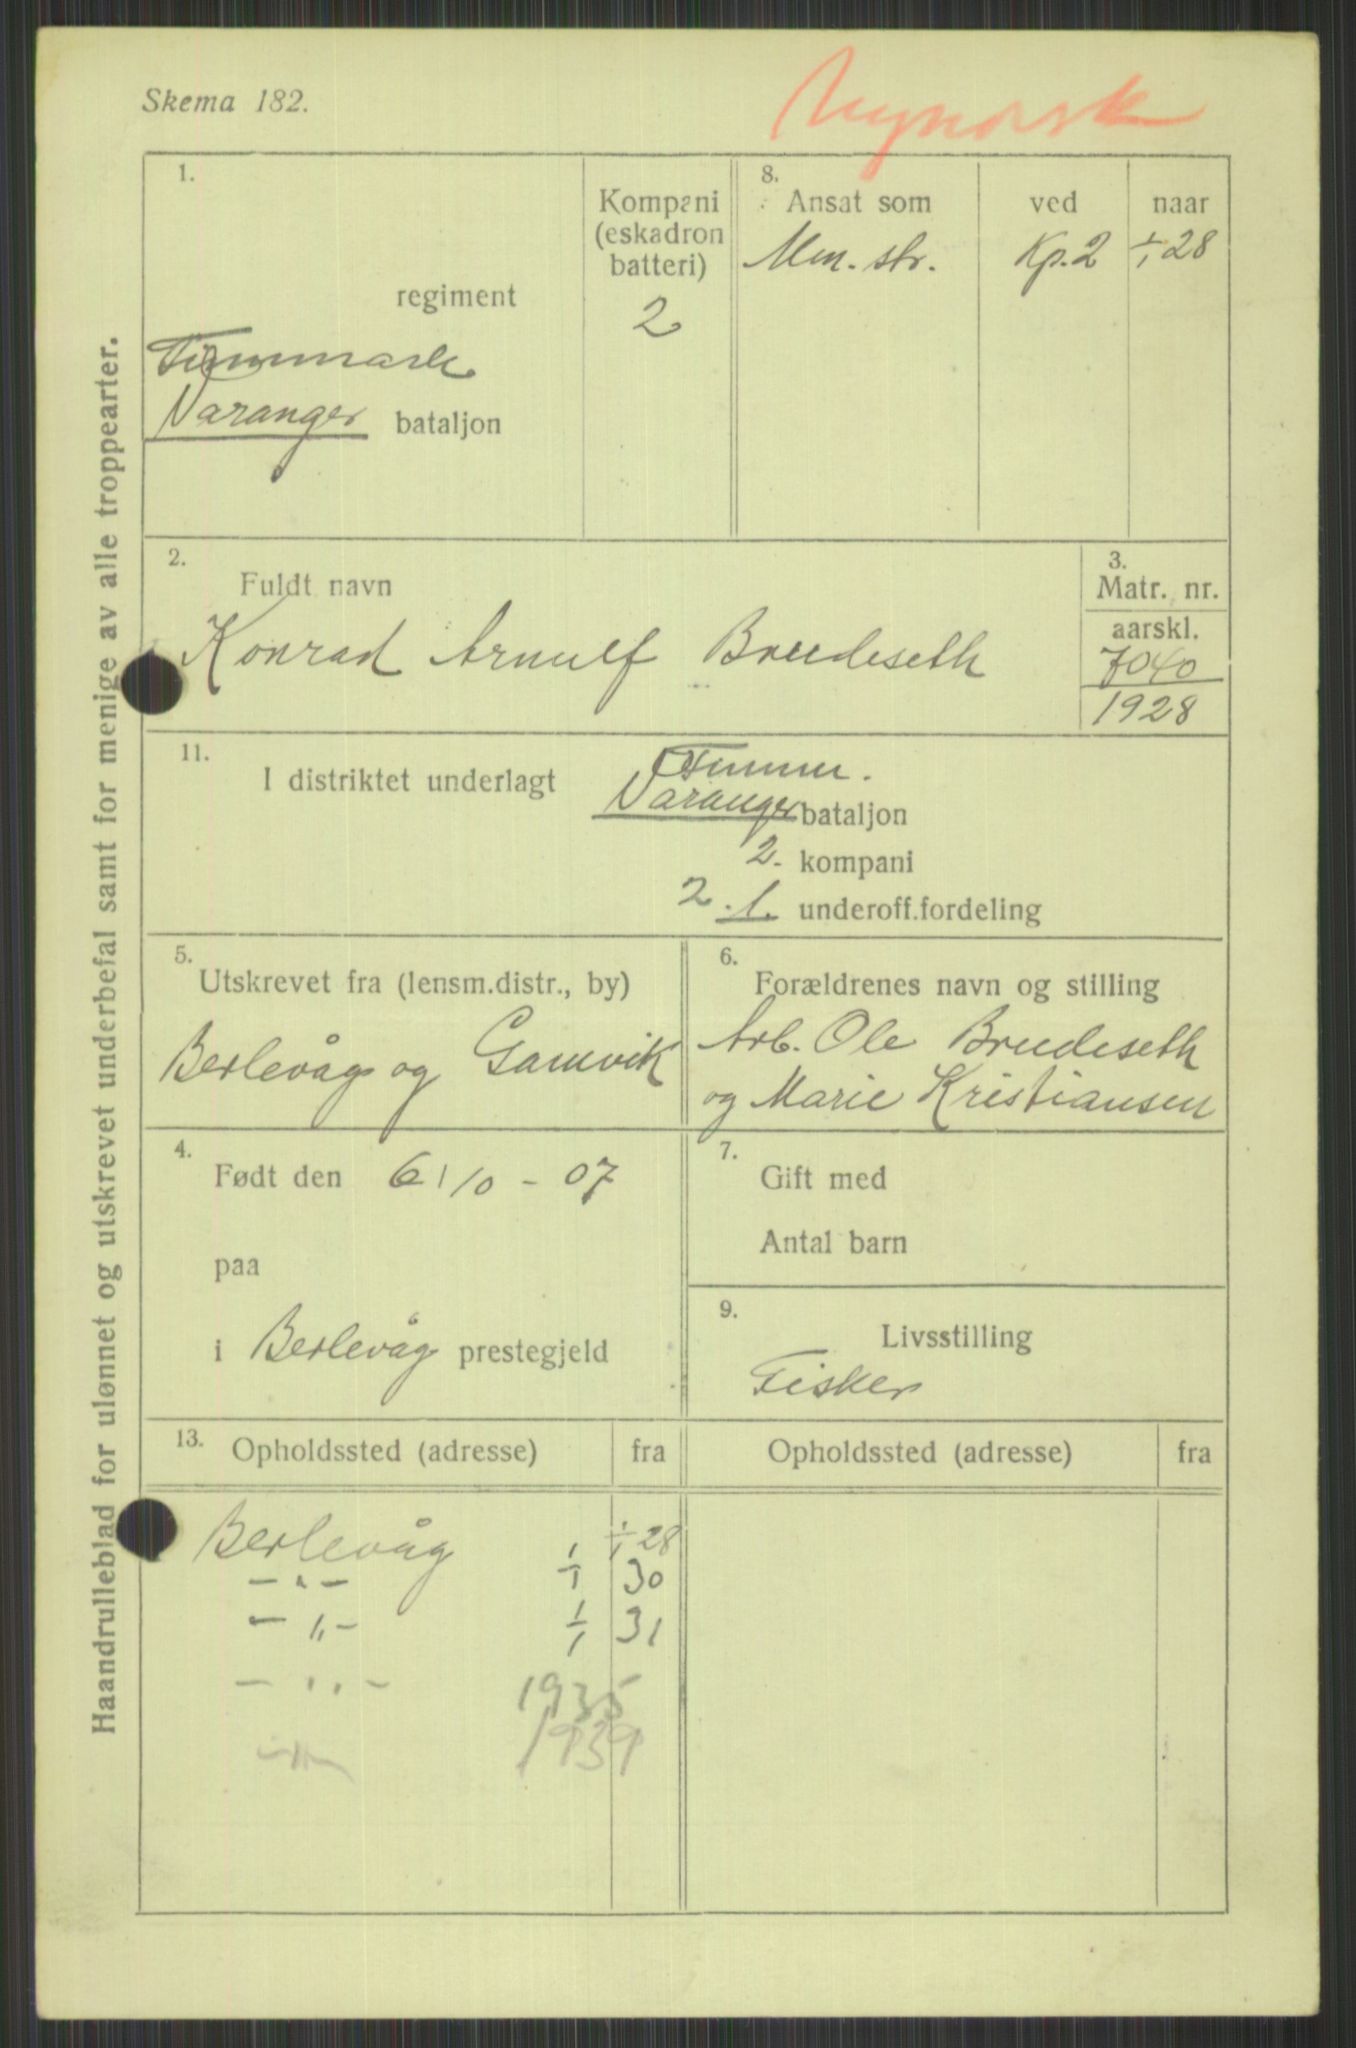 Skema 182.
Nynorsk
Haandrulleblad for ulønnet og utskrevet underbefal samt for menige av alle troppearter.
1.
regiment
Finnmark
Varanger bataljon
Kompani
(eskadron
batteri)
2
8.
Ansat som ved naar
Men. str. Kp. 2 1/1 28
2.
Fuldt navn
Konrad Arnulf Brudeseth
3.
Matr. nr.
aarskl.
7040
1928
11.
I distriktet underlagt
Finnm.
Varanger bataljon
2. kompani
2. 1. underoff.fordeling
5.
Utskrevet fra (lensm.distr., by)
Berlevåg og Gamvik
6.
Forældrenes navn og stilling
Arb. Ole Brudeseth
og Marie Kristiansen
4.
Født den 6/10 - 07
paa
i Berlevåg prestegjeld
7.
Gift med
Antal barn
9.
Livsstilling
Fisker
13.
Opholdssted (adresse) fra Opholdssted (adresse) fra
Berlevåg 1/1 28
— " — 1/1 30
— " — 1/1 31
— " — 1935
— " — 1939